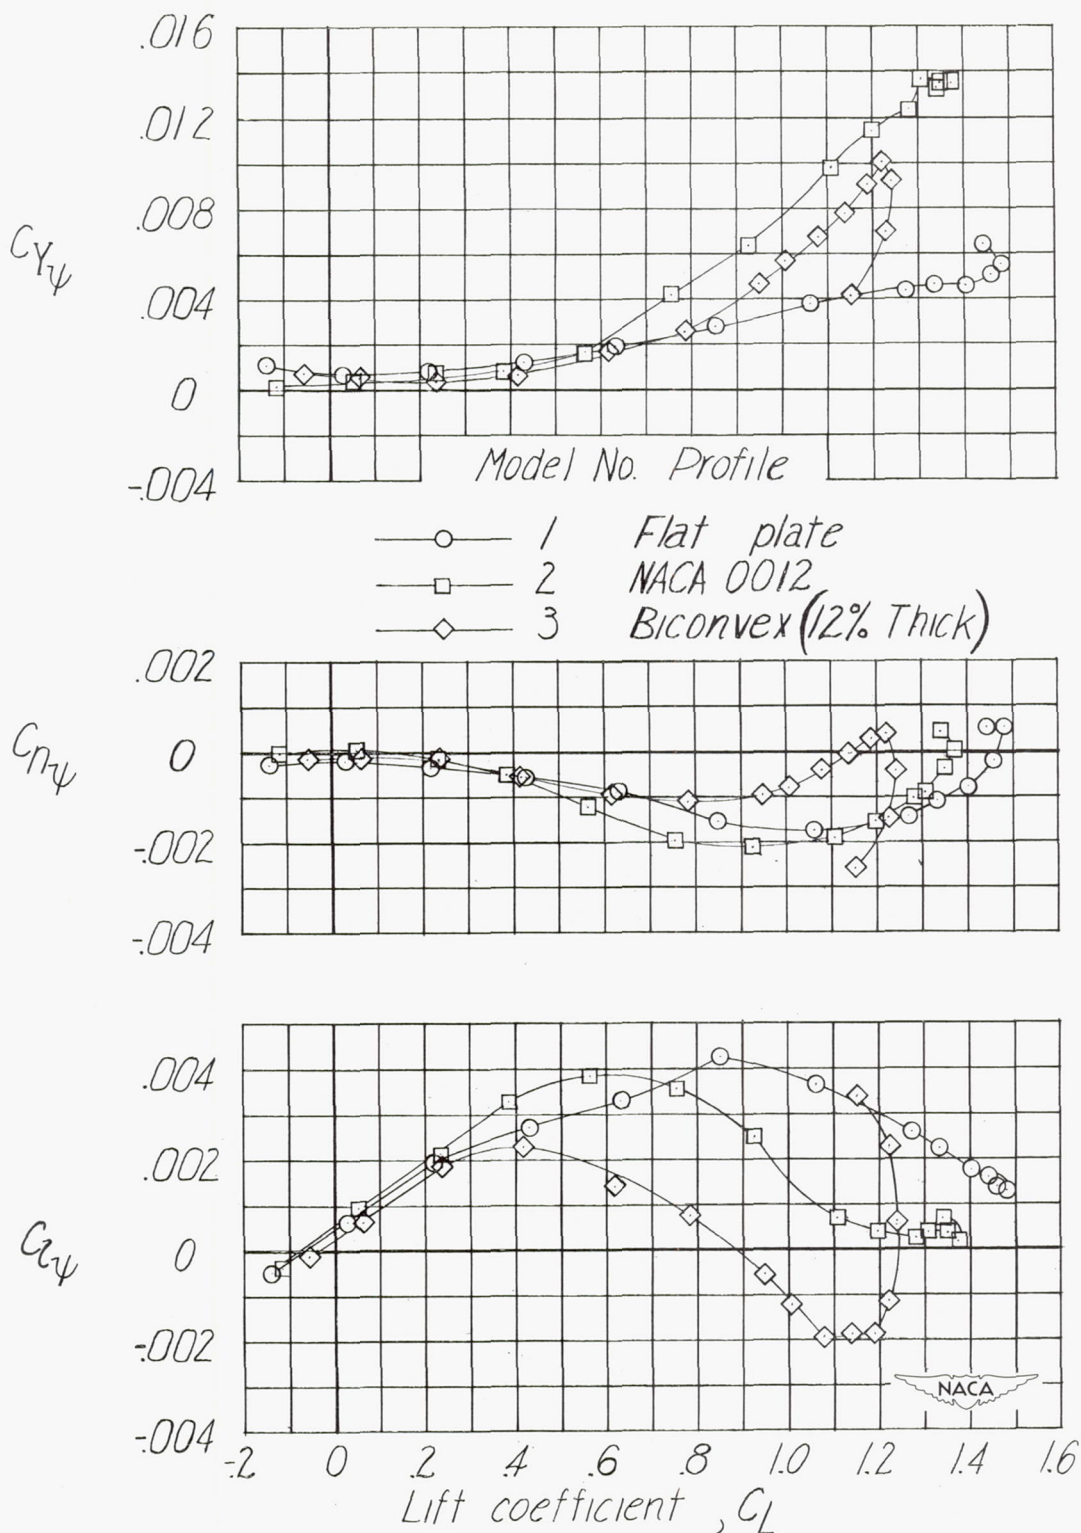 .016
.012
.008
.004
0
-.004
C_Yψ
Model No. Profile
1 Flat plate
2 NACA 0012
3 Biconvex (12% Thick)
.002
0
-.002
-.004
C_nψ
.004
.002
0
-.002
-.004
C_lψ
NACA
-.2 0 .2 .4 .6 .8 1.0 1.2 1.4 1.6
Lift coefficient , C_L